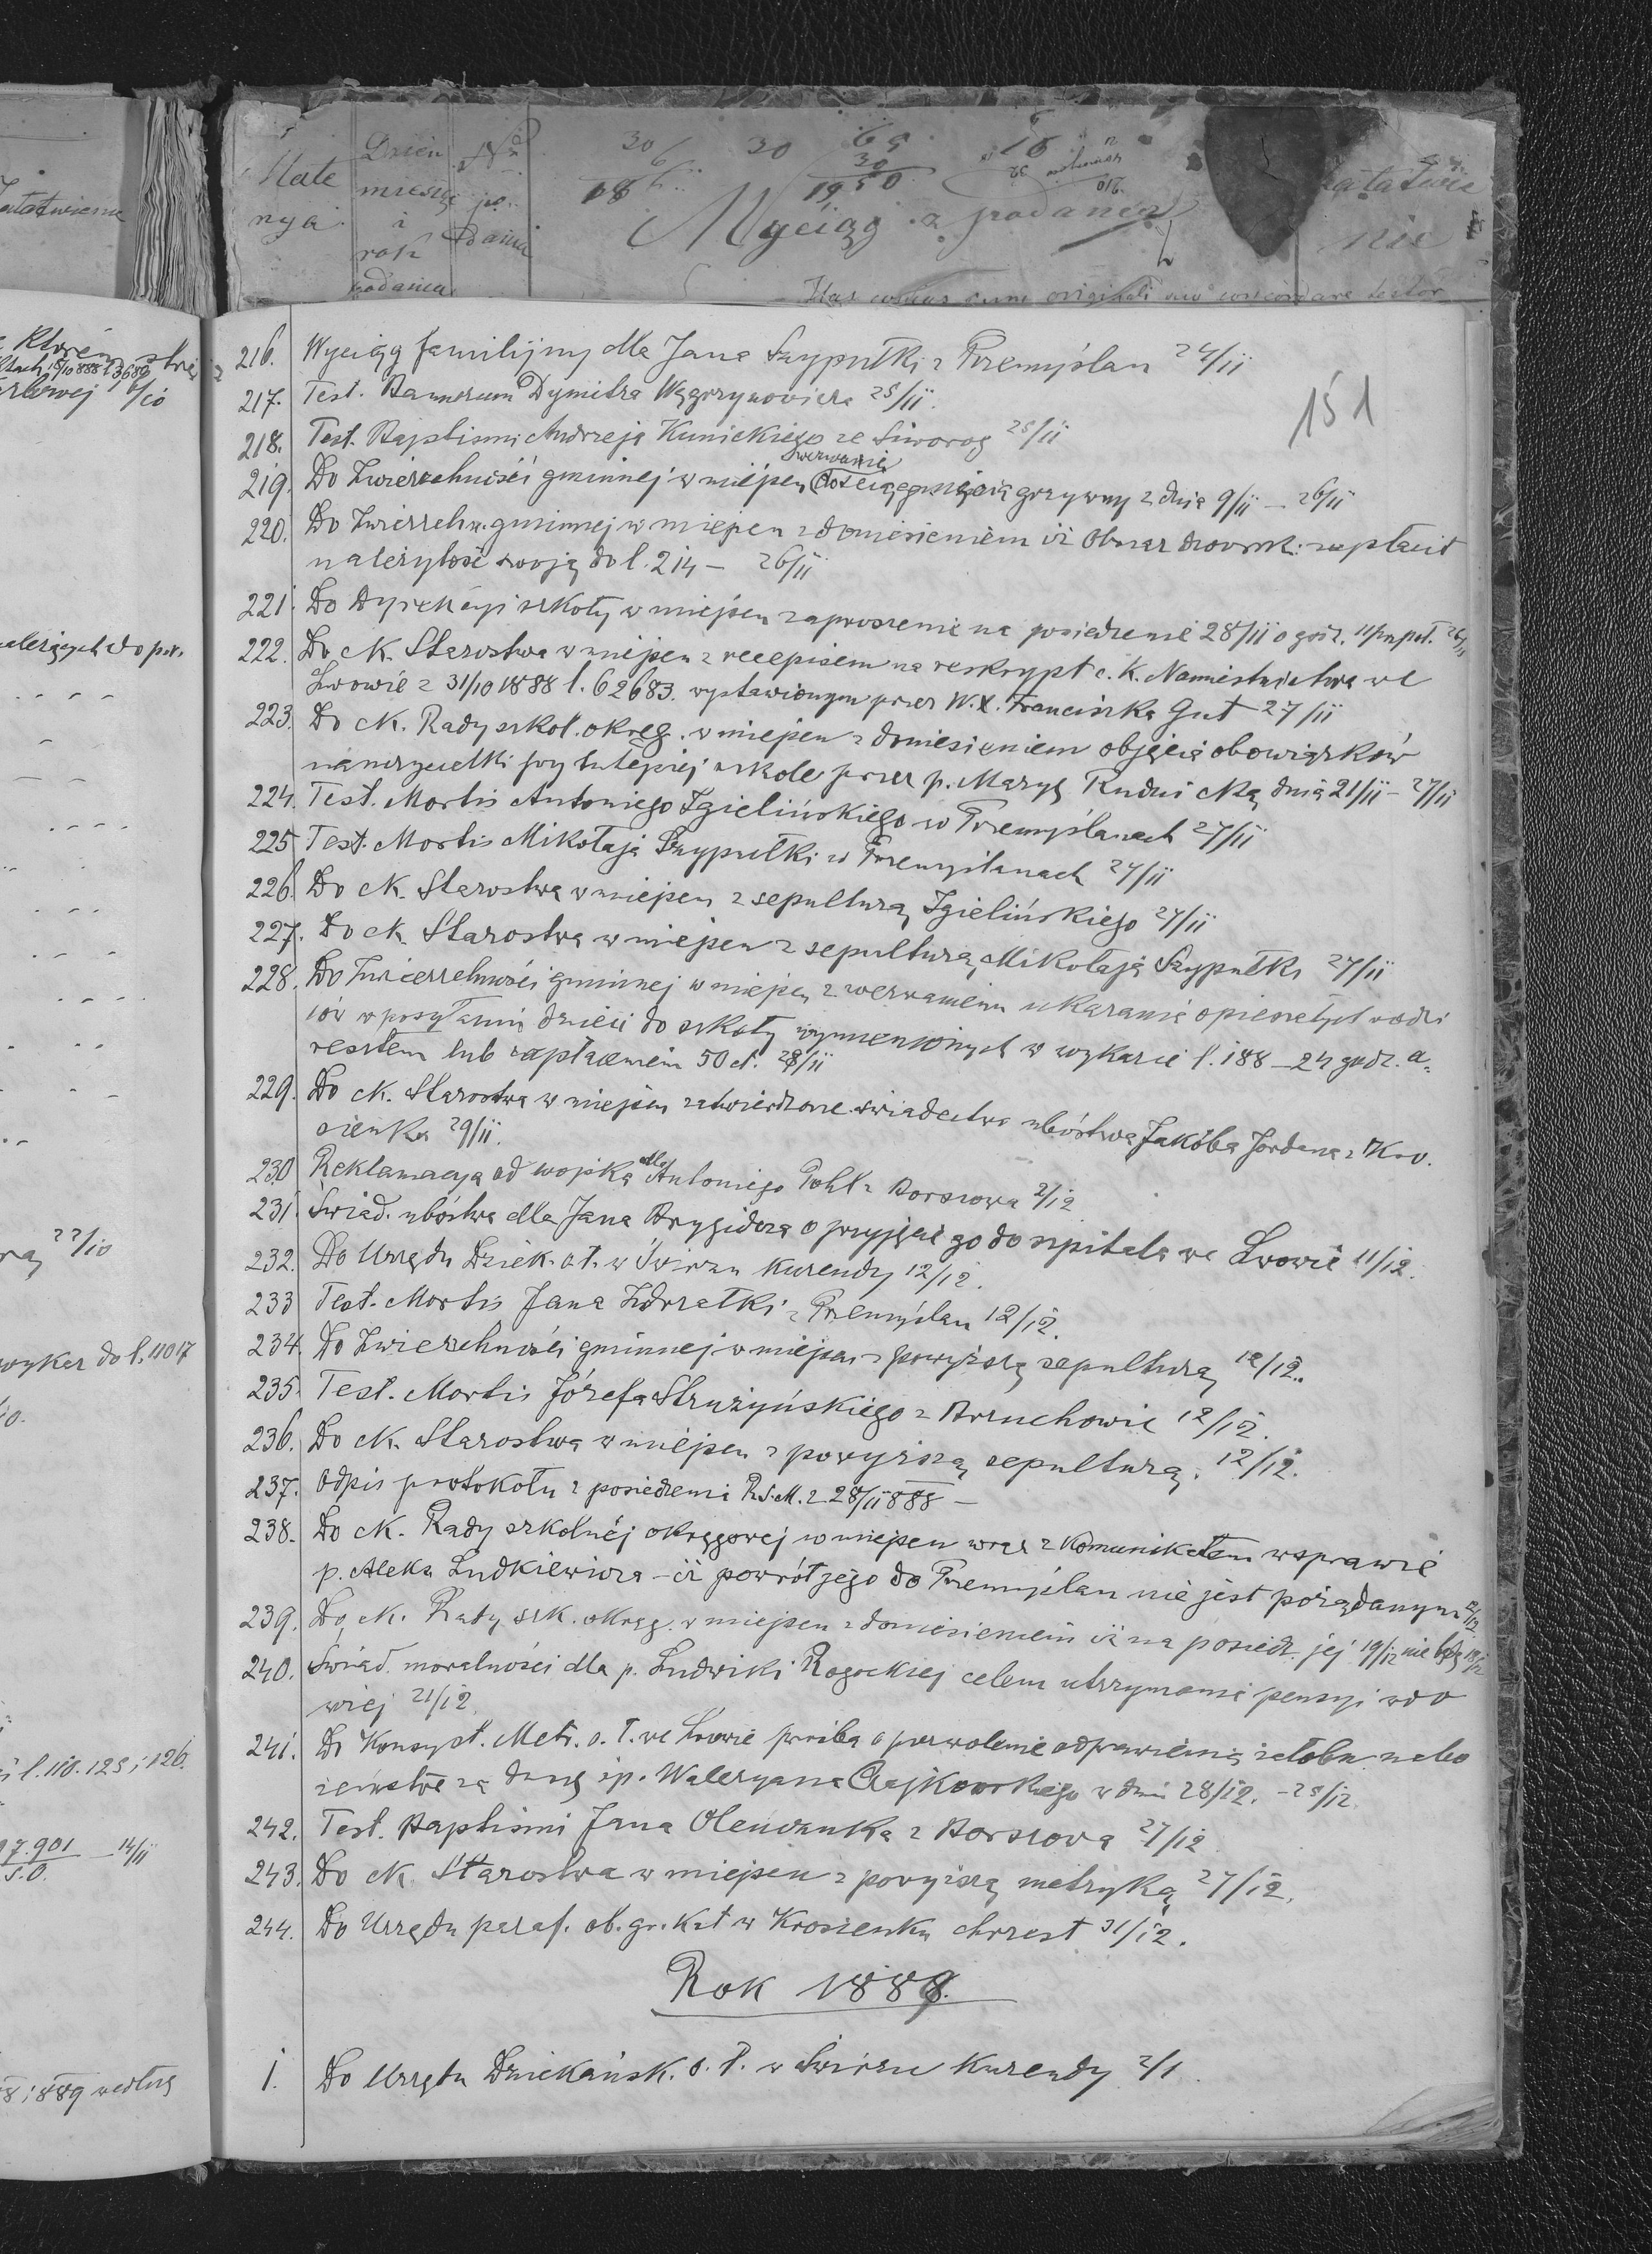 Dzień
miesię
i
rok
podania
po
dania
Wyciąg z podania
załatwie
nie
Załatwienie
151
216. Wyciąg familijny dla Jana Szypułki z Przemyślan 24/11
217. Test. Bannorum Dymitra Węgrzynowicza 25/11.
218. Test. Baptismi Andrzeja Kunickiego ze Siworog 25/11
wezwanie
219. Do Zwierzchności gminnej w miejscu grzywny z dnia 9/11 – 26/11
220. Do Zwierzchn. gminnej w miejscu z doniesieniem iż Obszar dworsk. zapłacił
należytość swoją do l. 214 – 26/11
221. Do Dyrekcyi szkoły w miejscu zaproszenie na posiedzenie 28/11 o godz. 11 26/11
222. Do ck. Starostwa w miejscu z recepisem na reskrypt c. k. Namiestnictwa we
Lwowie z 31/10 1888 l. 62683. wystawionym przez W.X. Franciszka Gut 27/11
223. Do ck. Rady szkol. okręg. w miejscu z doniesieniem objęcia obowiązków
nauczycielki przy tutejszej szkole przez p. Maryę Rudnicką dnia 21/11 – 27/11
224. Test. Mortis Antoniego Igielińskiego w Przemyślanach 27/11
225 Test. Mortis Mikołaja Szypułki w Przemyślanach 27/11
226. Do ck. Starostwa w miejscu z sepulturą Igielińskiego 27/11
227. Do ck. Starostwa w miejscu z sepulturą Mikołaja Szypułki 27/11
228. Do Zwierzchności gminnej w miejscu z wezwaniem ukarania opieszałych rodzi
ców w posyłaniu dzieci do szkoły wymienionych w wykazie l. 188 – 24 godz. a-
resztem lub zapłaceniem 50 ct. 28/11
229. Do ck. Starostwa w miejscu zatwierdzone świadectwo ubóstwa Jakóba Jordana z Kro.
sienka 29/11.
230 Reklamacya od wojska dla Antoniego Pohl z Borszowa 2/12
231. Świad. ubóstwa dla Jana Brygidera o przyjęcie go do szpitala we Lwowie 11/12.
232. Do Urzędu Dziek. o. ł. w Świrzu Kurendy 12/12.
233 Test. Mortis Jana Zdrzałki z Przemyślan 12/12.
234. Do Zwierzchności gminnej w miejscu z powyższą sepulturą 12/12.
235. Test. Mortis Józefa Strużyńskiego z Brzuchowic 12/12.
236. Do ck. Starostwa w miejscu z powyższą sepulturą. 12/12.
237. Odpis protokołu z posiedzenia R.S.M. z 28/11 888 –
238. Do ck. Rady szkolnej okręgowej w miejscu wraz z Komunikatem w sprawie
p. Aleks. Ludkiewicza – iż powrót jego do Przemyślan nie jest pożądanym
239. Do ck. Rady szk. okręg. w miejscu z doniesieniem iż na posiedz. jej 19/12 nie będę
240. Świad. moralności dla p. Ludwiki Rogockiej celem utrzymania pensyi wdo
wiej 21/12.
241. Do Konsyst. Metr. o. ł. we Lwowie prośba o pozwolenie odprawienia żałobn. nabo
żeństwa za duszę śp. Waleryana Czajkowskiego w dniu 28/12. – 25/12.
242. Test. Baptismi Jana Olenczuka z Borszowa 27/12
243. Do ck. Starostwa w miejscu z powyższą metryką 27/12.
244. Do Urzędu paraf. ob. gr. kat w Krosienku chrzest 31/12.
Rok 1889.
1. Do Urzędu Dziekańsk. o. ł. w Świrzu Kurendy 2/1